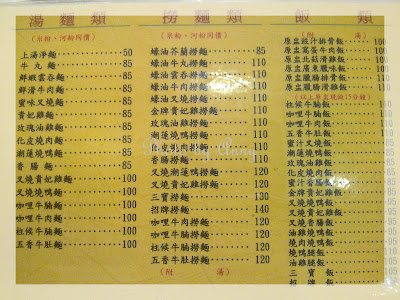 湯麵類
(米粉,河粉同價)
上湯淨麵………50
牛丸麵………85
鮮蝦雲吞麵………85
鮮滑牛肉麵………85
蜜味叉燒麵………85
貴妃雞麵………85
玫瑰油雞麵………85
化皮燒肉麵………85
潮蓮燒鴨麵………85
香腸麵………85
叉燒貴妃雞麵………100
叉燒燒鴨麵………100
咖哩牛腩麵………100
咖哩牛肉麵………100
柱候牛腩麵………100
五香牛肚麵………100
撈麵類
(米粉,河粉同價)
蠔油芥蘭撈麵………85
蠔油牛丸撈麵………110
蠔油雲吞撈麵………110
蠔油牛肉撈麵………110
蠔油叉燒撈麵………110
金牌貴妃雞撈麵………110
玫瑰油雞撈麵………110
潮蓮燒鴨撈麵
燒肉撈麵
香腸撈麵………110
叉燒潮蓮鴨撈麵………120
叉燒貴妃雞撈麵………120
三寶撈麵………130
招牌撈麵………140
咖哩牛肉撈麵………120
咖哩牛腩撈麵………120
柱候牛腩撈麵………120
五香牛肚撈麵………120
(附湯)
飯類
(附湯)
原盅豉汁排骨飯………100
原盅窩蛋牛肉飯………100
原盅北菇滑雞飯
原盅廣東臘味飯
原盅臘腸排骨飯
原盅臘腸滑雞飯
(以上單點現做15分鐘)
柱候牛腩飯
咖哩牛腩飯
咖哩牛肉飯
五香牛肚飯
蜜汁叉燒飯
潮蓮燒鴨飯
玫瑰油雞飯
化皮燒肉飯
蜜汁香腸飯
金牌貴妃雞飯
叉燒貴妃雞飯
叉燒油雞飯
叉燒燒鴨飯
燒肉燒鴨飯
燒鴨腿飯
油雞腿飯
三寶飯
招牌飯